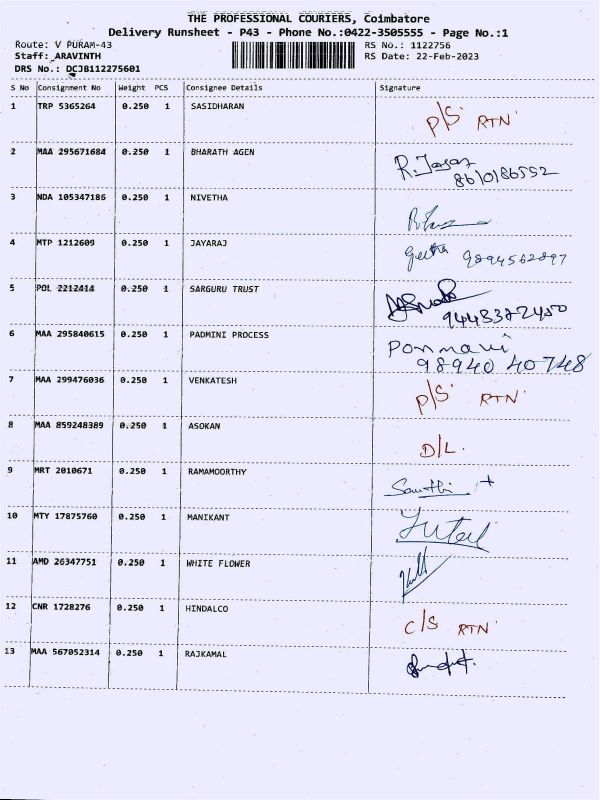 THE PROFESSIONAL COURIERS, Coimbatore
Delivery Runsheet - P43 - Phone No.:0422-3505555 - Page No.:1
Route: V PURAM-43 RS No.: 1122756
Staff: ARAVINTH RS Date: 22-Feb-2023
DRS No.: DCJB112275601
S No Consignment No Weight PCS Consignee Details Signature
1 TRP 5365264 0.250 1 SASIDHARAN P/S RTN
2 MAA 295671684 0.250 1 BHARATH AGEN
8610186552
3 NDA 105347186 0.250 1 NIVETHA
4 MTP 1212609 0.250 1 JAYARAJ Geetha 9894562897
5 POL 2212414 0.250 1 SARGURU TRUST
9448372450
6 MAA 295840615 0.250 1 PADMINI PROCESS Ponmani
98940 40748
7 MAA 299476036 0.250 1 VENKATESH P/S RTN
8 MAA 859248389 0.250 1 ASOKAN D/L.
9 MRT 2010671 0.250 1 RAMAMOORTHY Santhi
10 MTY 17875760 0.250 1 MANIKANT
11 AMD 26347751 0.250 1 WHITE FLOWER
12 CNR 1728276 0.250 1 HINDALCO C/S RTN
13 MAA 567052314 0.250 1 RAJKAMAL